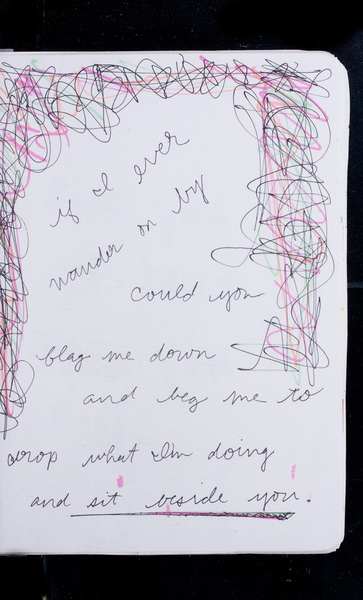 if I ever
wander on by
could you
flag me down
and beg me to
drop what I'm doing
and sit beside you.